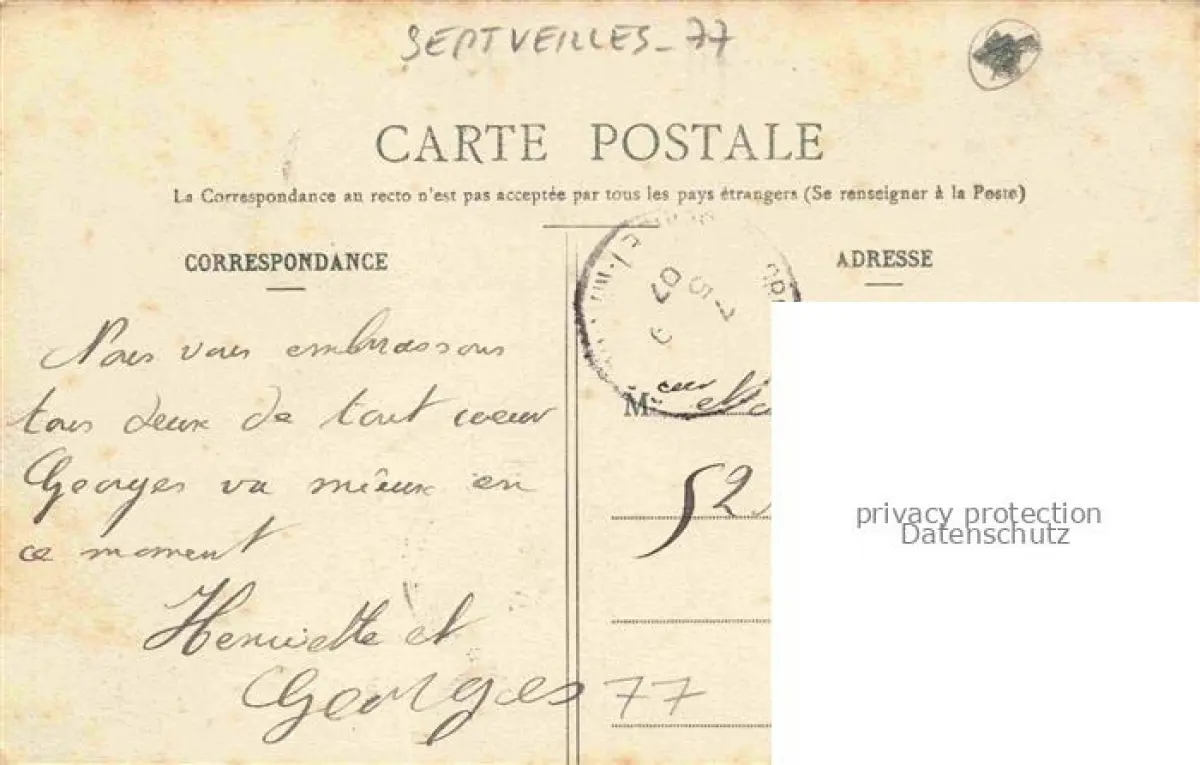 SEPTVEILLES_77
CARTE POSTALE
La Correspondance au recto n'est pas acceptée par tous les pays étrangers (Se renseigner à la Poste)
CORRESPONDANCE
ADRESSE
Nous vous embrassons
tous deux de tout coeur
Georges va mieux en
ce moment
Henriette et
Georges
7-5
07
M
52
77
privacy protection
Datenschutz